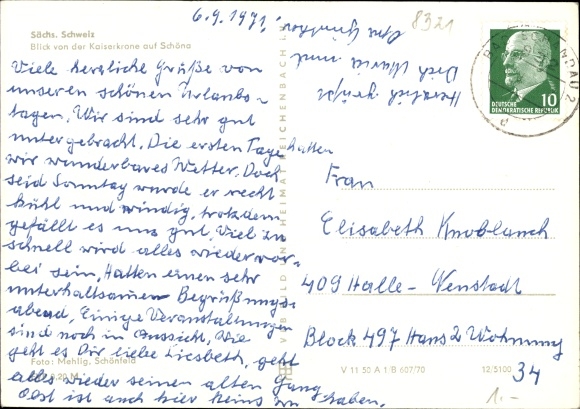 6.9.1971.
8321
Sächs. Schweiz
Blick von der Kaiserkrone auf Schöna
Viele herzliche Grüße von
unseren schönen Urlaubs-
tagen. Wir sind sehr gut
untergebracht. Die ersten Tage hatten
wir wunderbares Wetter. Doch
seid Sonntag wurde er recht
kühl und windig, trotzdem
gefällt es uns gut. Viel zu
schnell wird alles wieder vor-
bei sein. Hatten einen sehr
unterhaltsamen Begrüßungs-
abend. Einige Veranstaltungen
sind noch in Aussicht. Wie
geht es Dir liebe Liesbeth, geht
alles wieder seinen alten Gang
Obst ist auch hier keins zu haben.
Herzlich grüßt
Dich Maria und
Foto: Mehlig, Schönfeld
0,20 M
VEB BILD UND HEIMAT REICHENBACH
DEUTSCHE
DEMOKRATISCHE REPUBLIK
10
BAD SCHANDAU 2
Frau
Elisabeth Knoblauch
409 Halle-Neustadt
Block 497 Haus 2 Wohnung
34
V 11 50 A 1/B 607/70
12/5100
1.-